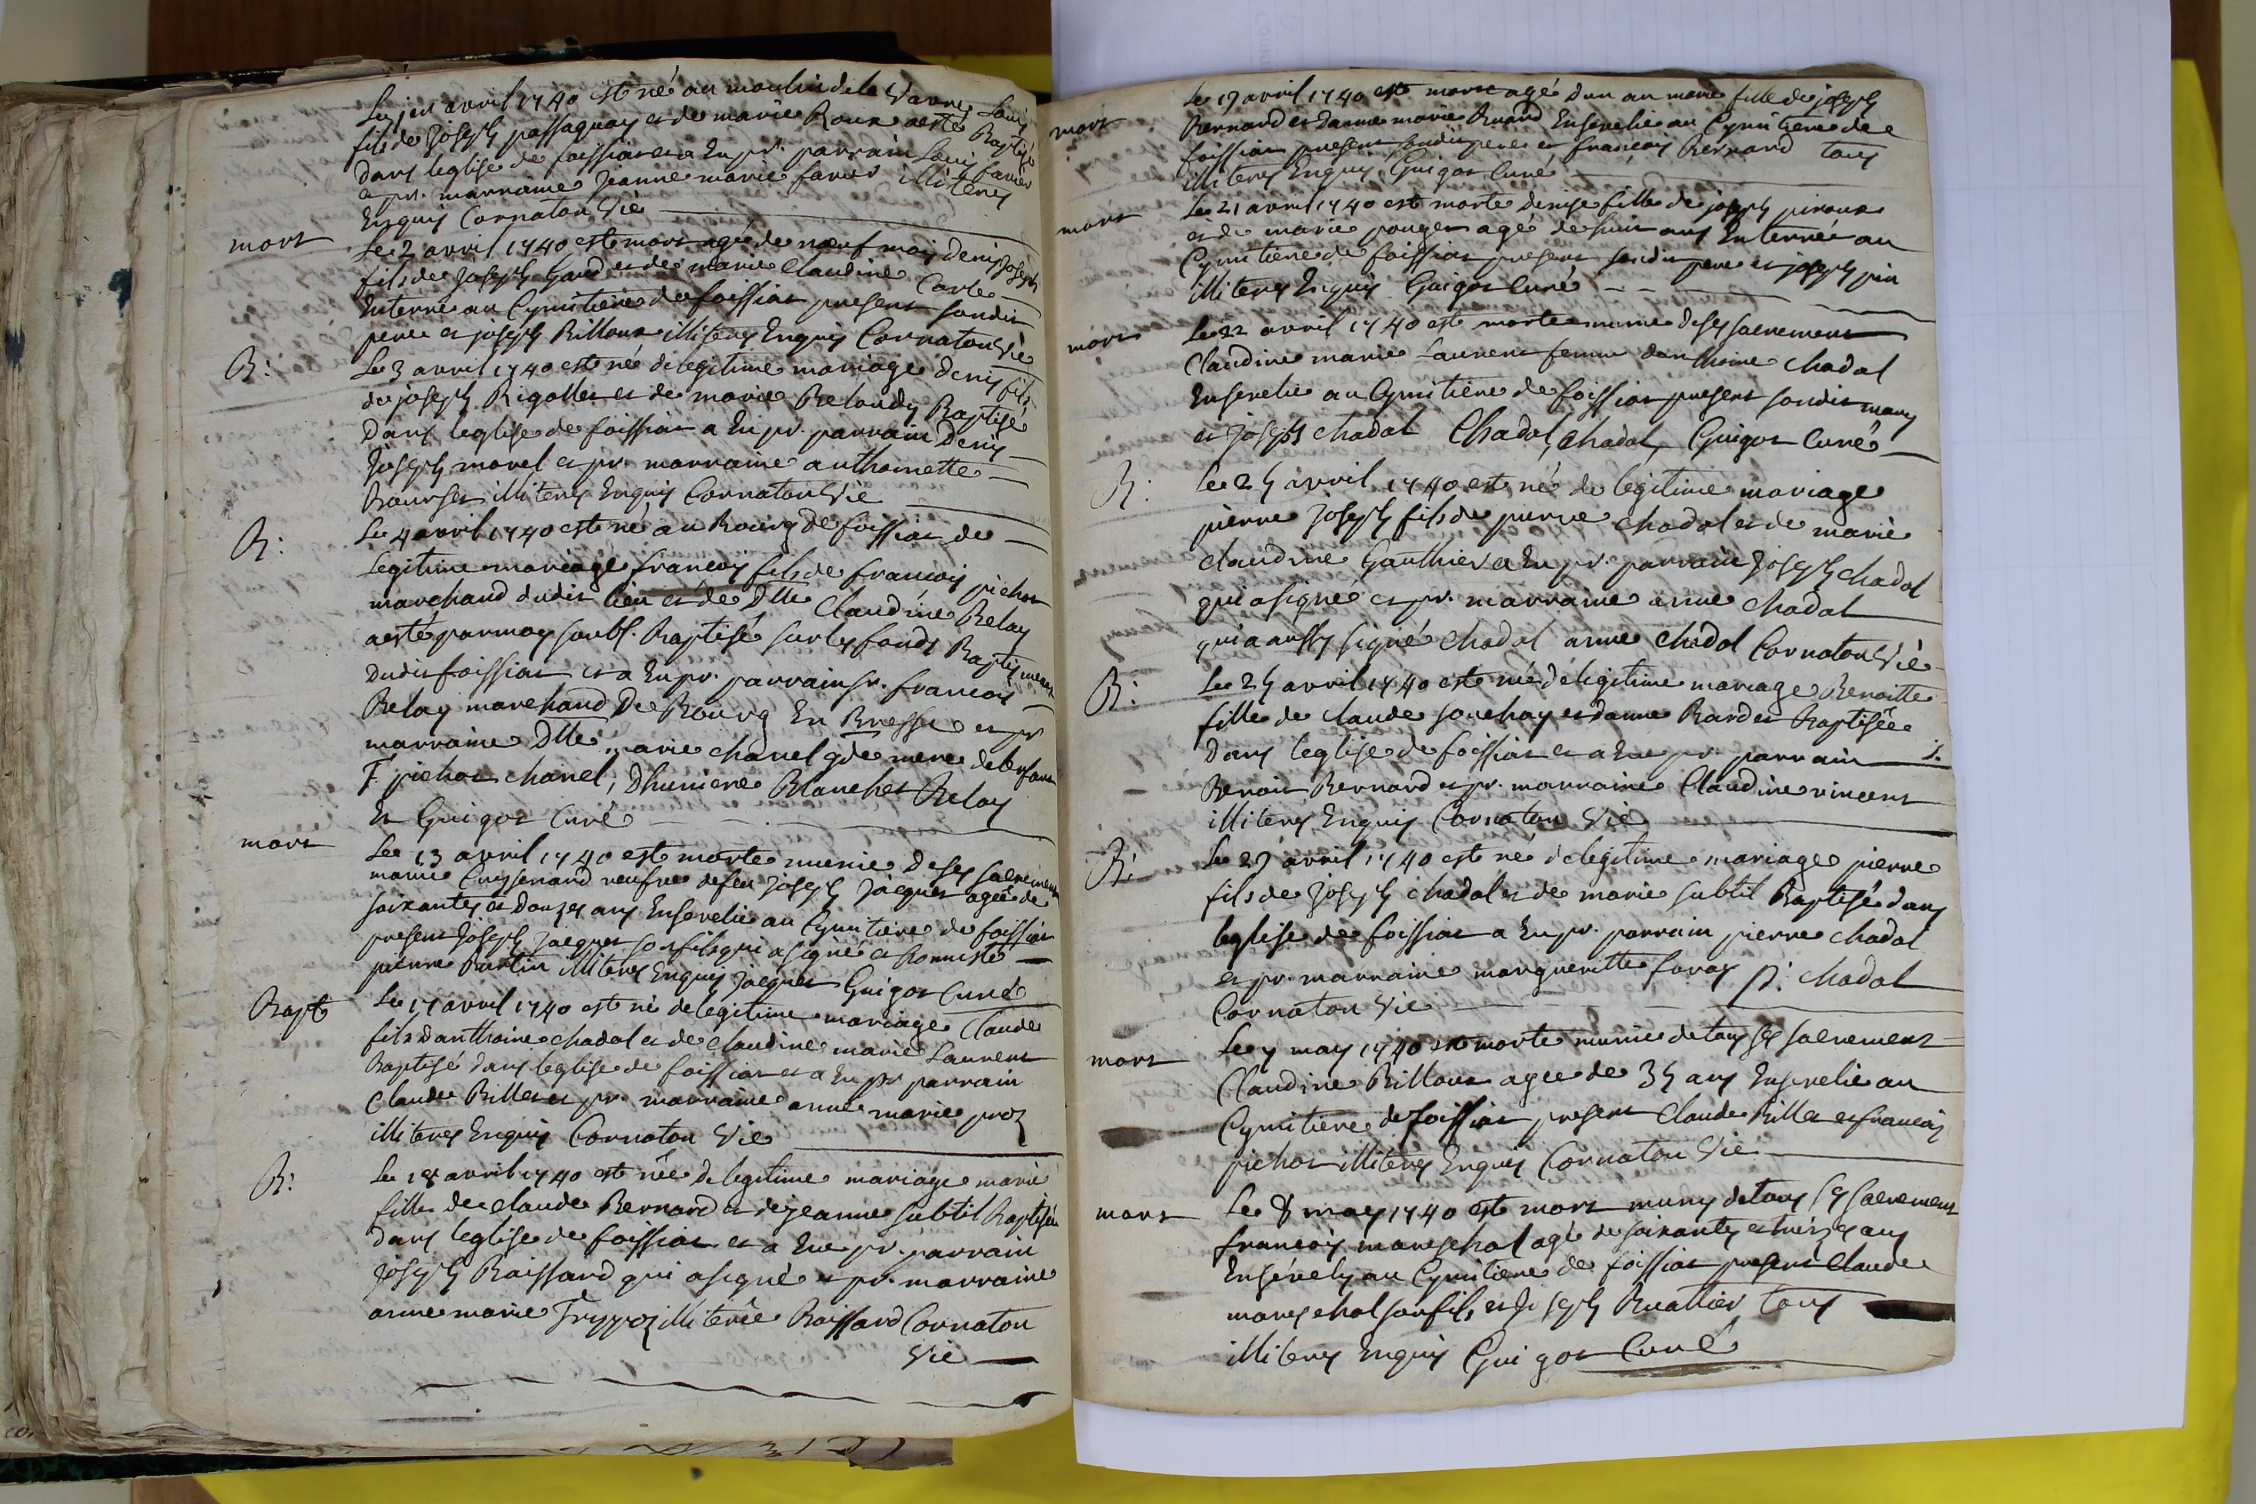 Le jer avril 1740 est né au moulin de la Varne Louis
fils de Joseph passaquay et de marie Roux aesté Baptisé
dans leglise de foissiat a Eu pr. parrain Louis favier
et pr. marraine Jeanne marie favier illiterés
Enquis Cornaton Vic
mort
Le 2 avril 1740 est mort agé de neuf mois denis Joseph
fils de Joseph Gaud et de marie Claudine Carle
Enterré au Cymitiere de foissiat present sondit
pere et joseph Billoux illiterés Enquis Cornaton Vic
B:
Le 3 avril 1740 est né de legitime mariage denis fils
de joseph Rigollet et de marie Beloudy Baptisé
Dans leglise de foissiat a Eu pr. parrain Denis
Joseph morel et pr. marraine anthoinette
Bourset illiterés Enquis Cornaton Vic
B:
Le 4 avril 1740 est né au Bourg de foissiat de
Legitime mariage francois fils de francois pichot
marchand dudit lieu et de Dlle Claudine Belay
aesté par moy soubs. Baptisé sur les fonds Baptismaux
Dudit foissiat et a Eu pr. parrain sr. francois
Belay marchand De Bourg En Bresse et pr
marraine Dlle marie chanel gde mere de lenfant
F pichot chanel, Dhuniere Blanchet Belay
Et Guigot Curé
mort
Le 13 avril 1740 est morte munie De ses sacrements
marie Cuissenard veufve de feu Joseph Jacquet agée de
soixantes et Douzes ans Ensevelie au Cymitiere de foissiat
present Joseph Jacquet son fils qui a signé et
pierre Burtin illiterés Enquis Jacquet Guigot Curé
Bapt
Le 17 avril 1740 est né de legitime mariage Claude
fils Danthoine chadal et de claudine marie Laurent
Baptisé dans leglise de foissiat et a Eu pr parrain
Claude Billet et pr. marraine anne marie proz
illiterés Enquis Cornaton Vic
B:
Le 18 avril 1740 est née De legitime mariage marie
fille de claude Bernard et de jeanne subtil Baptisée
dans leglise de foissiat et a Eue pr. parrain
Joseph Boissard qui a signé et pr. marraine
anne marie illiterée Boissard Cornaton
Vic
mort
Le 19 avril 1740 est mort agé dun an marie fille de joseph
Bernard et Danne marie Enseveli au Cymitiere de
foissiat present sondit pere et francois Bernard tous
illiterés Enquis Guigot Curé
mort
Le 21 avril 1740 est morte Denise fille de joseph piroux
et de marie pouget agé de huit ans Enterrée au
Cymitiere de foissiat present sondit pere et joseph pin
illiterés Enquis Guigot Curé
mort
Le 22 avril 1740 est morte munie de ses sacrement
Claudine marie Laurent femme danthoine chadal
Ensevelie au Cymitiere de foissiat present sondit mary
et Joseph chadal Chadal, chadal, Guigot Curé
B:
Le 25 avril 1740 est né de legitime mariage
pierre Joseph fils de pierre chadal et de marie
claudine Gauthier a Eu pr. parrain Joseph chadal
qui a signé et pr. marraine anne chadal
qui a aussy signé chadal anne chadal Cornaton Vic
B:
Le 25 avril 1740 est née de legitime mariage Benoitte
fille de claude souchay et danne Bardet Baptisée
Dans leglise de foissiat et a Eue pr. parrain
Benoit Bernard et pr. marraine Claudine vincent
illiterés Enquis Cornaton Vic
B:
Le 29 avril 1740 est né de legitime mariage pierre
fils de Joseph chadal et de marie subtil Baptisé dans
leglise de foissiat a Eu pr. parrain pierre chadal
et pr. marraine margueritte favry p: chadal
Cornaton Vic
mort
Le 7 may 1740 est morte munie de tous ses sacrement
Claudine Billoux agee de 35 ans Ensevelie au
Cymitiere de foissiat present Claude Billet et francois
pichot illiterés Enquis Cornaton Vic
mort
Le 8 may 1740 est mort muny de tous ses sacrement
francois mareschal agé de soixantes et treizes ans
Ensevely au Cymitiere de foissiat present Claude
mareschal son fils et Joseph Ruattier tous
illiterés Enquis Guigot Curé